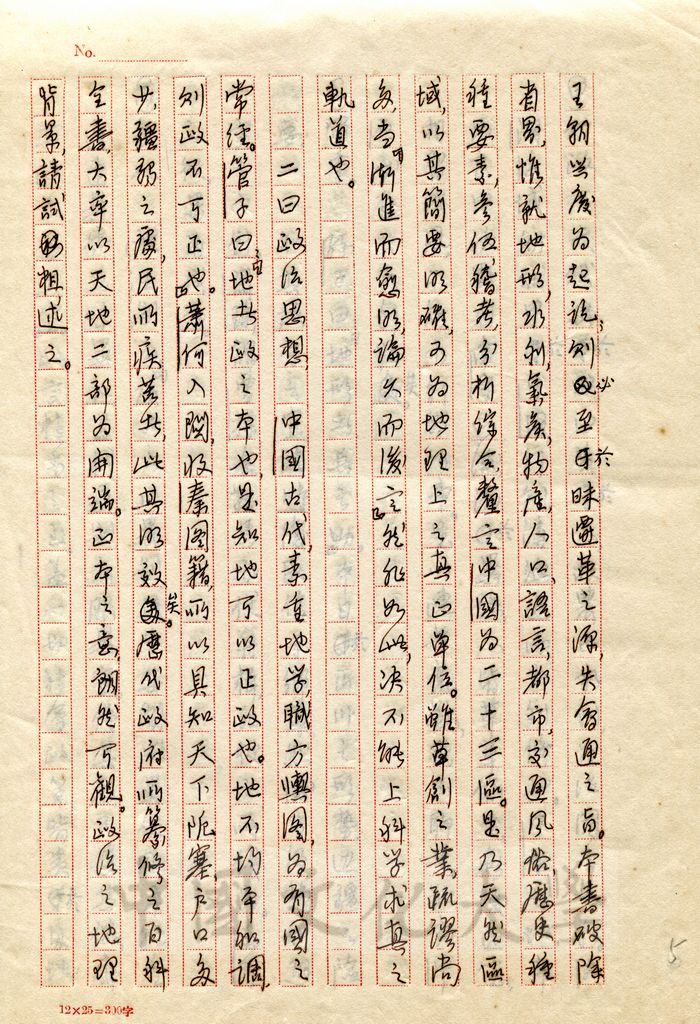 No.
王朝興廢為起訖,則必至於昧遷革之源,失會通之旨。本書破除
省界,惟就地形,水利,氣候,物產,人口,語言,都市,交通風俗,歷史種
種要素,參伍稽考,分析綜合,釐定中國為二十三區。是乃天然區
域,以其簡要明確,可為地理上之真正單位。雖草創之業,疏謬尚
多,當漸進而愈明,論久而後定,然非如此,決不能上科學求真之
軌道也。
二曰政治思想 中國古代,素重地學,職方輿圖,為有國之
常經。管子曰:「地者政之本也,是知地可以正政也。地不均平和調,
則政不可正也。」蕭何入關,收秦圖籍,所以具知天下阨塞戶口多
少,彊弱之處,民所疾苦者,此其明效矣。歷代政府所纂修之百科
全書,大率以天地二部為開端。正本之意,朗然可觀。政治之地理
背景,請試粗述之。
12×25=300字
5
中國文化大學